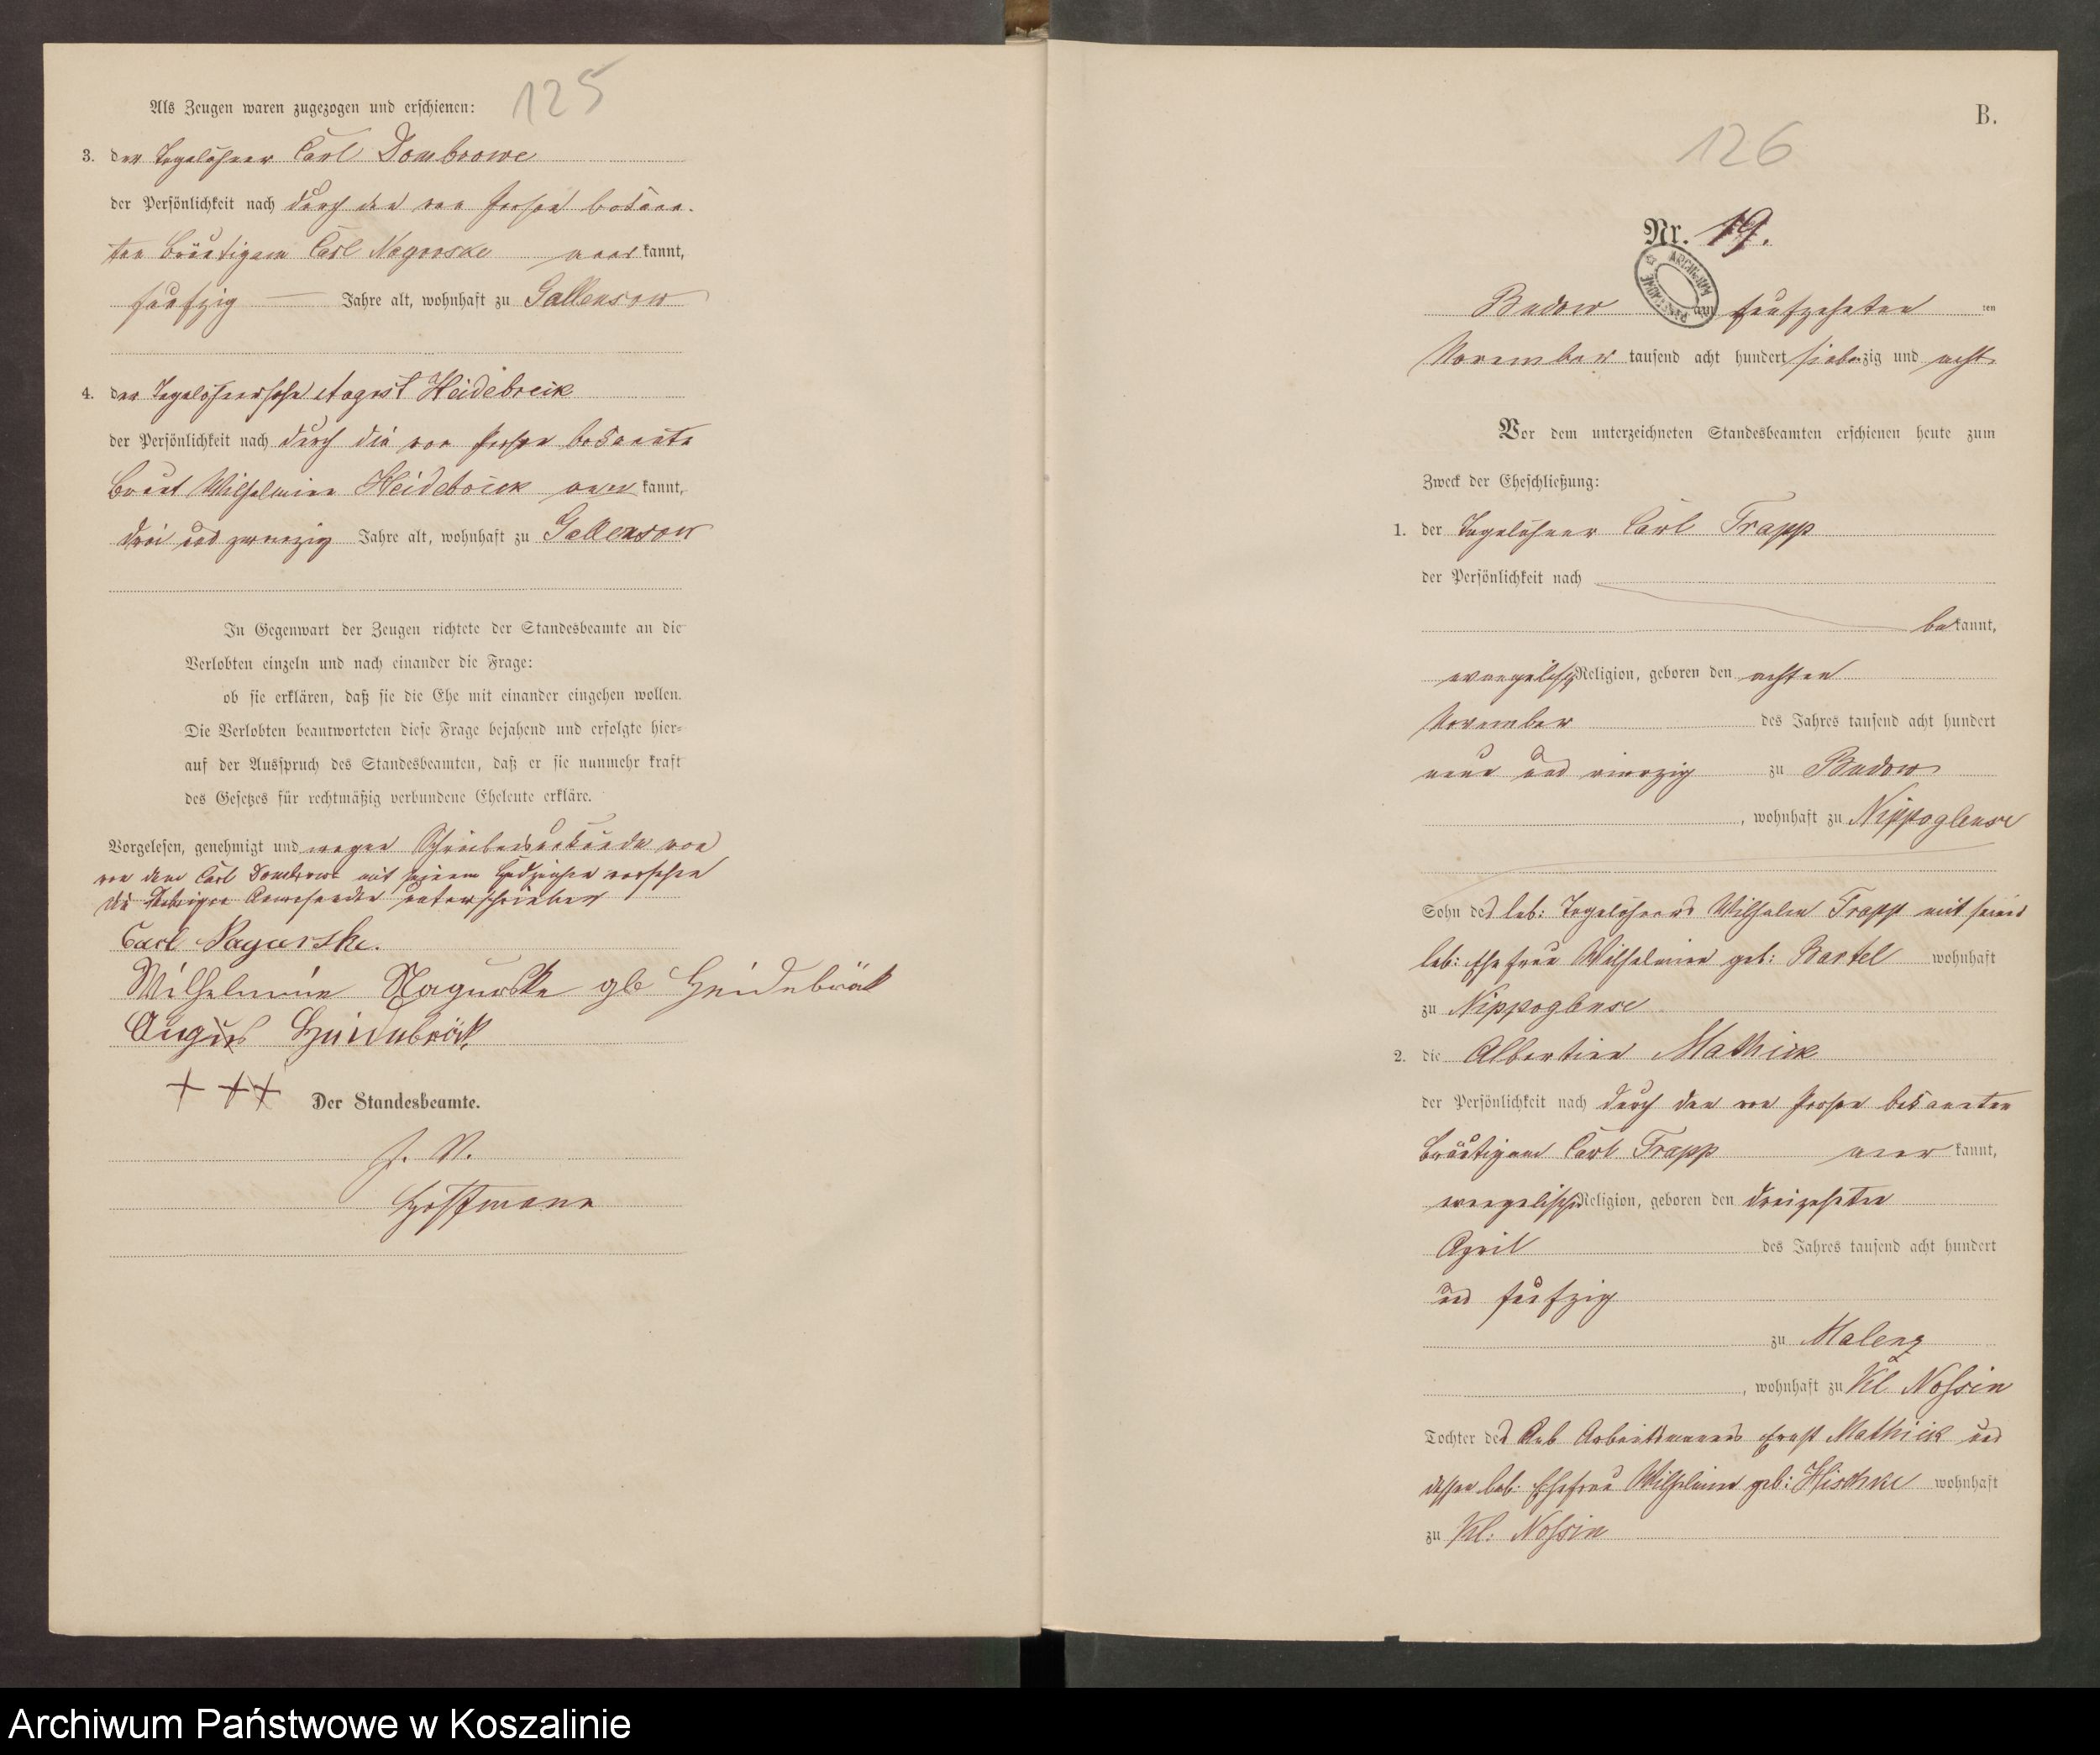 125
Als Zeugen waren zugezogen und erschienen:
3. der Tagelöhner Carl Dombrowe
der Persönlichkeit nach durch den von Person bekann-
ten Bräutigam Carl Nagorske aner kannt,
fünfzig Jahre alt, wohnhaft zu Gallensow
4. der Tagelöhnersohn August Heidebreik
der Persönlichkeit nach durch die von Person bekannte
Braut Wilhelmine Heidebreik aner kannt,
drei und zwanzig Jahre alt, wohnhaft zu Gallensow
In Gegenwart der Zeugen richtete der Standesbeamte an die
Verlobten einzeln und nach einander die Frage:
ob sie erklären, daß sie die Ehe mit einander eingehen wollen.
Die Verlobten beantworteten diese Frage bejahend und erfolgte hier-
auf der Ausspruch des Standesbeamten, daß er sie nunmehr kraft
des Gesetzes für rechtmäßig verbundene Eheleute erkläre.
Vorgelesen, genehmigt und wegen Schreibensunkunde von
von dem Carl Dombrowe mit seinem Handzeichen versehen
die Uebrigen Anwesenden unterschrieben
Carl Nagorske.
Wilhelmine Nagurske gb Heidebräk
August Heidebräk
+ ++ Der Standesbeamte.
J. V.
Hoffmann
B.
126
Nr. 19.
Budow am fünfzehnten ten
November tausend acht hundert siebenzig und acht
Vor dem unterzeichneten Standesbeamten erschienen heute zum
Zweck der Eheschließung:
1. der Tagelöhner Carl Trapp
der Persönlichkeit nach
bekannt,
evangelisch Religion, geboren den achten
November des Jahres tausend acht hundert
neun und vierzig zu Budow
, wohnhaft zu Nippoglense
Sohn des leb: Tagelöhners Wilhelm Trapp mit seiner
leb: Ehefrau Wilhelmine geb: Bartel wohnhaft
zu Nippoglense
2. die Albertine Mathick
der Persönlichkeit nach durch den von Person bekannten
Bräutigam Carl Trapp aner kannt,
evangelischer Religion, geboren den dreizehnten
April des Jahres tausend acht hundert
und fünfzig
zu Malenz
, wohnhaft zu Kl Nossin
Tochter des Arbeitsmanns Ernst Mathick und
dessen leb: Ehefrau Wilhelmine geb: Hischke wohnhaft
zu Kl: Nossin
Archiwum Państwowe w Koszalinie